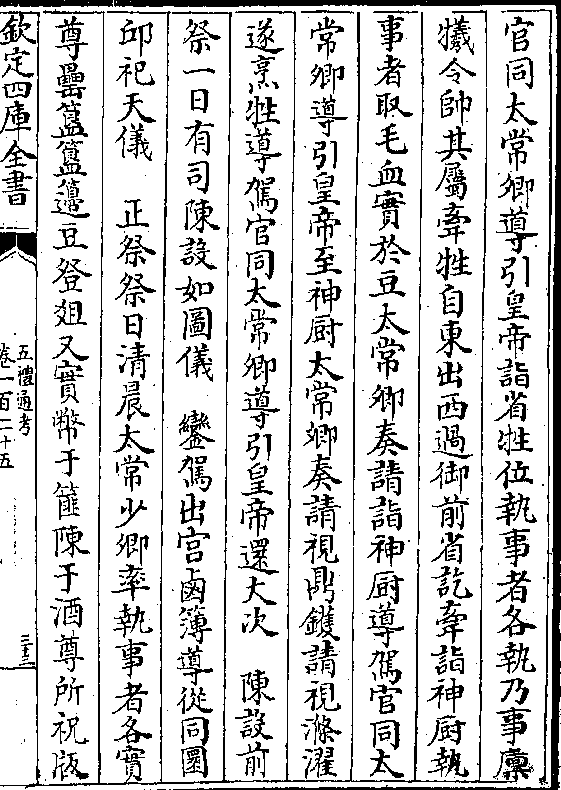 官同太常卿導引皇帝詣省牲位執事者各執乃事廪
犧令帥其屬牽牲自東出西過御前省訖牽詣神厨執
事者取毛血實於豆太常卿奏請詣神厨導駕官同太
常卿導引皇帝至神厨太常卿奏請視鼎鑊請視滌濯
遂烹牲導駕官同太常卿導引皇帝還大次　陳設前
祭一日有司陳設如圖儀　鑾駕出宫鹵簿導從同圜
邱祀天儀　正祭祭日清晨太常少卿率執事者各實
尊罍簠簋籩豆登爼又實幣于篚陳于酒尊所祝版
欽定四庫全書
五禮通考
卷一百二十五